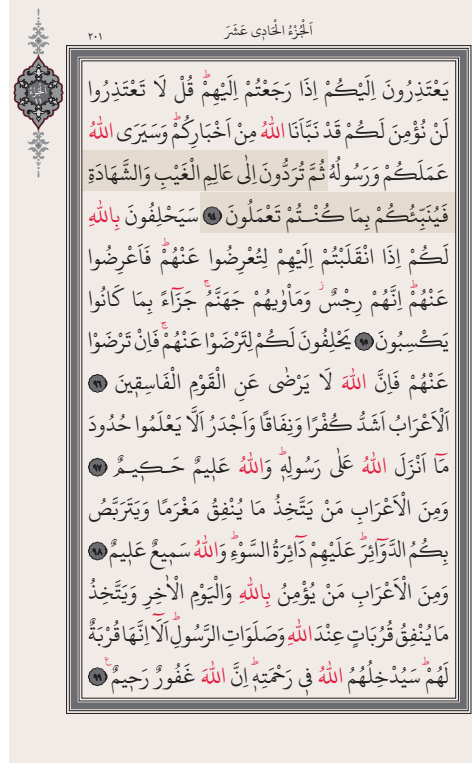 اَلْجُزْءُ الْحَادِي عَشَرَ
٢٠١
اَلْجُزْءُ
١١
يَعْتَذِرُونَ اِلَيْكُمْ اِذَا رَجَعْتُمْ اِلَيْهِمْؕ قُلْ لَا تَعْتَذِرُوا
لَنْ نُؤْمِنَ لَكُمْ قَدْ نَبَّاَنَا اللّٰهُ مِنْ اَخْبَارِكُمْؕ وَسَيَرَى اللّٰهُ
عَمَلَكُمْ وَرَسُولُهُ ثُمَّ تُرَدُّونَ اِلٰى عَالِمِ الْغَيْبِ وَالشَّهَادَةِ
فَيُنَبِّئُكُمْ بِمَا كُنْتُمْ تَعْمَلُونَ ﴿٩٤﴾ سَيَحْلِفُونَ بِاللّٰهِ
لَكُمْ اِذَا انْقَلَبْتُمْ اِلَيْهِمْ لِتُعْرِضُوا عَنْهُمْؕ فَاَعْرِضُوا
عَنْهُمْؕ اِنَّهُمْ رِجْسٌؗ وَمَأْوٰيهُمْ جَهَنَّمُۚ جَزَٓاءً بِمَا كَانُوا
يَكْسِبُونَ ﴿٩٥﴾ يَحْلِفُونَ لَكُمْ لِتَرْضَوْا عَنْهُمْۚ فَاِنْ تَرْضَوْا
عَنْهُمْ فَاِنَّ اللّٰهَ لَا يَرْضٰى عَنِ الْقَوْمِ الْفَاسِقٖينَ ﴿٩٦﴾
اَلْاَعْرَابُ اَشَدُّ كُفْرًا وَنِفَاقًا وَاَجْدَرُ اَلَّا يَعْلَمُوا حُدُودَ
مَٓا اَنْزَلَ اللّٰهُ عَلٰى رَسُولِهٖؕ وَاللّٰهُ عَلٖيمٌ حَكٖيمٌ ﴿٩٧﴾
وَمِنَ الْاَعْرَابِ مَنْ يَتَّخِذُ مَا يُنْفِقُ مَغْرَمًا وَيَتَرَبَّصُ
بِكُمُ الدَّوَٓائِرَؕ عَلَيْهِمْ دَٓائِرَةُ السَّوْءِؕ وَاللّٰهُ سَمٖيعٌ عَلٖيمٌ ﴿٩٨﴾
وَمِنَ الْاَعْرَابِ مَنْ يُؤْمِنُ بِاللّٰهِ وَالْيَوْمِ الْاٰخِرِ وَيَتَّخِذُ
مَا يُنْفِقُ قُرُبَاتٍ عِنْدَ اللّٰهِ وَصَلَوَاتِ الرَّسُولِؕ اَلَٓا اِنَّهَا قُرْبَةٌ
لَهُمْؕ سَيُدْخِلُهُمُ اللّٰهُ فٖي رَحْمَتِهٖؕ اِنَّ اللّٰهَ غَفُورٌ رَحٖيمٌ ﴿٩٩﴾